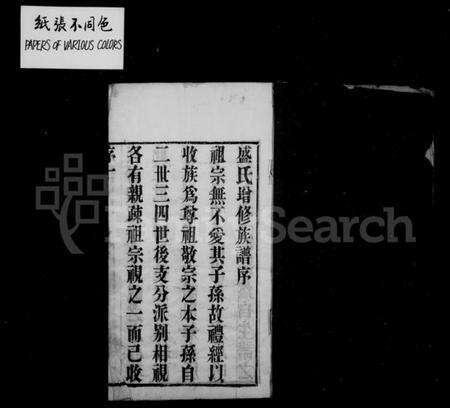 紙張不同色
PAPERS OF VARIOUS COLORS
盛氏增修族譜序
祖宗無不愛其子孫故禮經以
收族爲尊祖敬宗之本子孫自
二世三四世後支分派別相視
各有親疎祖宗視之一而已收